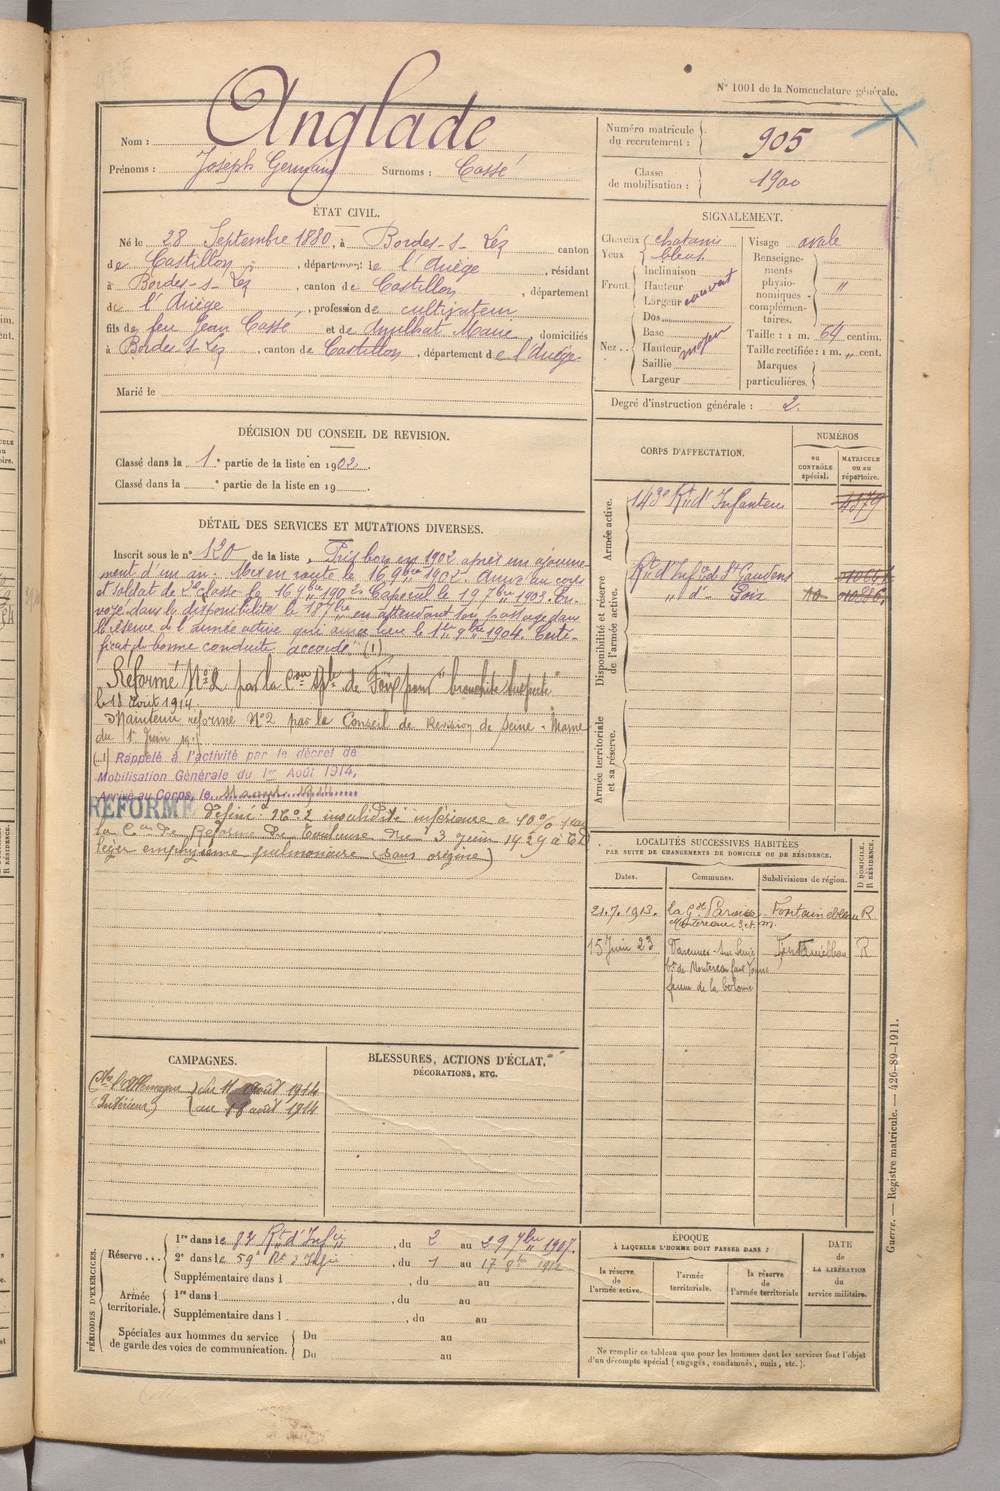 N° 1001 de la Nomenclature générale.
Nom : Anglade
Prénoms : Joseph Germain Surnoms : Cassé
Numéro matricule du recrutement : 905
Classe de mobilisation : 1900
ÉTAT CIVIL.
Né le 28 Septembre 1880, à Bordes-s-Lez canton
de Castillon, département de l'Ariège, résidant
à Bordes-s-Lez, canton de Castillon, département
de l'Ariège, profession de cultivateur
fils de feu Jean Cassé et de Marie domiciliés
à Bordes-s-Lez, canton de Castillon, département de l'Ariège
Marié le
SIGNALEMENT.
Cheveux chatains
Yeux bleus
Front
Inclinaison
Hauteur
Largeur couvert
Nez
Dos
Base
Hauteur moyen
Saillie
Largeur
Visage ovale
Renseignements physionomiques complémentaires. "
Taille : 1 m. 64 centim.
Taille rectifiée : 1 m. " cent.
Marques particulières.
Degré d'instruction générale : 2.
DÉCISION DU CONSEIL DE REVISION.
Classé dans la 1e partie de la liste en 1902.
Classé dans la e partie de la liste en 19
DÉTAIL DES SERVICES ET MUTATIONS DIVERSES.
Inscrit sous le n° 120 de la liste. Pris bon en 1902 après un ajourne-
ment d'un an. Mis en route le 16 9bre 1902. Arrivé au corps
et soldat de 2e classe le 16 9bre 1902. Caporal le 19 7bre 1903. En-
voyé dans la disponibilité le 18 7bre en attendant son passage dans
la réserve de l'armée active qui aura lieu le 1er 9bre 1904. Certi-
ficat de bonne conduite accordé. (1)
Réformé N°2 par la Con Sple de Foix pour "bronchite suspecte"
le 18 Aout 1914.
Maintenu réformé N°2 par le Conseil de Revision de Seine-Marne
du 1 Juin
(1) Rappelé à l'activité par le décret de
Mobilisation Générale du 1er Août 1914,
Arrivé au Corps, le
RÉFORMÉ définif N°2 invalidité inférieure à 10% par
la Con de Réforme de Toulouse du 3 Juin
léger emphysème pulmonaire (sans origine)
CORPS D'AFFECTATION.
NUMÉROS
au CONTRÔLE spécial.
MATRICULE ou au répertoire.
Armée active.
143e Rt d'Infanterie 4879
Disponibilité et réserve de l'armée active.
Rt d'Infie de St Gaudens
" d° Foix
Armée territoriale et sa réserve.
LOCALITÉS SUCCESSIVES HABITÉES
PAR SUITE DE CHANGEMENTS DE DOMICILE OU DE RÉSIDENCE.
Dates. Communes. Subdivisions de région. D DOMICILE. R RÉSIDENCE.
21.7.1913. La Gde Paroisse Fontainebleau R
Montereau S.et.m.
15 Juin 23 Varennes-sur Seine Fontainebleau R
Con de Montereau faut Yonne
ferme de la
CAMPAGNES.
Cte l'Allemagne du 11 août 1914
(Intérieur) au 18 août 1914
BLESSURES, ACTIONS D'ÉCLAT,
DÉCORATIONS, ETC.
PÉRIODES D'EXERCICES.
Réserve ...
1re dans le 83 Rt d'Infie, du 2 au 29 7bre 1907.
2e dans le 59e Rt d'Infie, du 1 au 17 8bre 1912
Supplémentaire dans l , du au
Armée territoriale.
1re dans l , du au
Supplémentaire dans l , du au
Spéciales aux hommes du service de garde des voies de communication.
Du au
Du au
ÉPOQUE
À LAQUELLE L'HOMME DOIT PASSER DANS :
la réserve de l'armée active.
l'armée territoriale.
la réserve de l'armée territoriale
DATE de LA LIBÉRATION du service militaire.
Ne remplir ce tableau que pour les hommes dont les services font l'objet
d'un décompte spécial (engagés, condamnés, omis, etc.).
Guerre. — Registre matricule. — 426-89-1911.